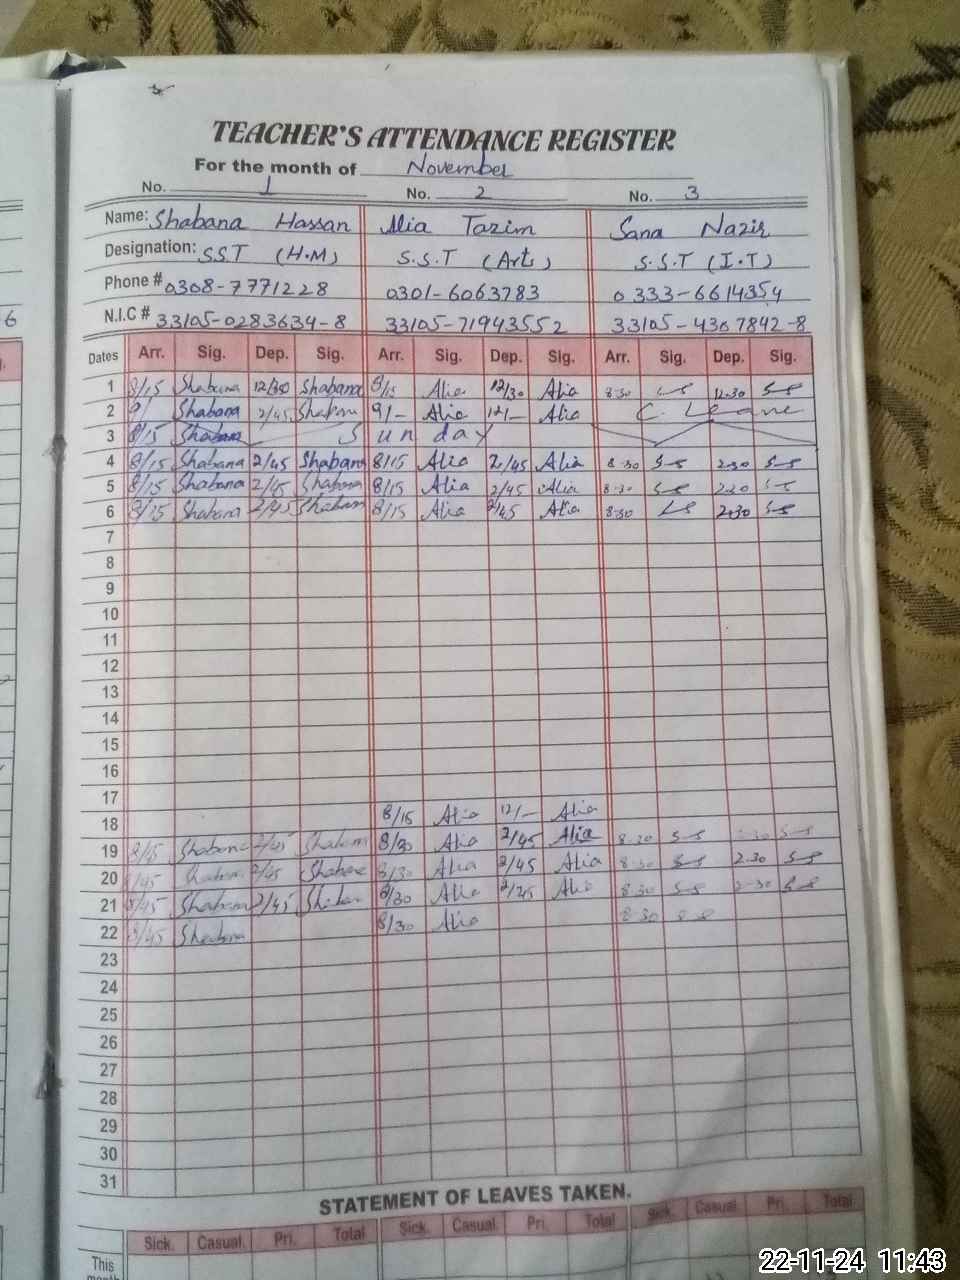 TEACHER'S ATTENDANCE REGISTER
For the month of November
No. 1 No. 2 No. 3
Name: Shabana Hassan Alia Tazim Sana Nazir
Designation: S.S.T (H.M) S.S.T (Arts) S.S.T (I.T)
Phone # 0308-7771228 0301-6063783 0333-6614354
6 N.I.C # 33105-0283634-8 33105-71943552 33105-4307842-8
Dates Arr. Sig. Dep. Sig. Arr. Sig. Dep. Sig. Arr. Sig. Dep. Sig.
1 8/15 Shabana 12/30 Shabana 8/15 Alia 12/30 Alia 8-30 12-30
2 9/ Shabana 2/45 Shabana 9/- Alia 12/- Alia C. Leave
3 8/15 Shabana Sunday
4 8/15 Shabana 2/45 Shabana 8/15 Alia 2/45 Alia 8-30 S-S 2-30 S-S
5 8/15 Shabana 2/45 Shabana 8/15 Alia 2/45 Alia 8-30 S-S 2-30 S-S
6 8/15 Shabana 2/45 Shabana 8/15 Alia 2/45 Alia 8-30 2-30 S-S
7
8
9
10
11
12
13
14
15
16
17
18 8/15 Alia 12/- Alia
19 8/45 Shabana 2/45 Shabana 8/30 Alia 2/45 Alia 8-30 S-S S-S
20 8/45 Shabana 2/45 Shabana 8/30 Alia 2/45 Alia 8-30 S-S 2-30 S-S
21 8/45 Shabana 2/45 Shabana 8/30 Alia 2/45 Alia 8-30 S-S 2-30 S-S
22 8/45 Shabana 8/30 Alia 8-30 S-S
23
24
25
26
27
28
29
30
31
STATEMENT OF LEAVES TAKEN.
Sick. Casual. Pri. Total Sick. Casual. Pri. Total Sick. Casual. Pri. Total
This
month
22-11-24 11:43